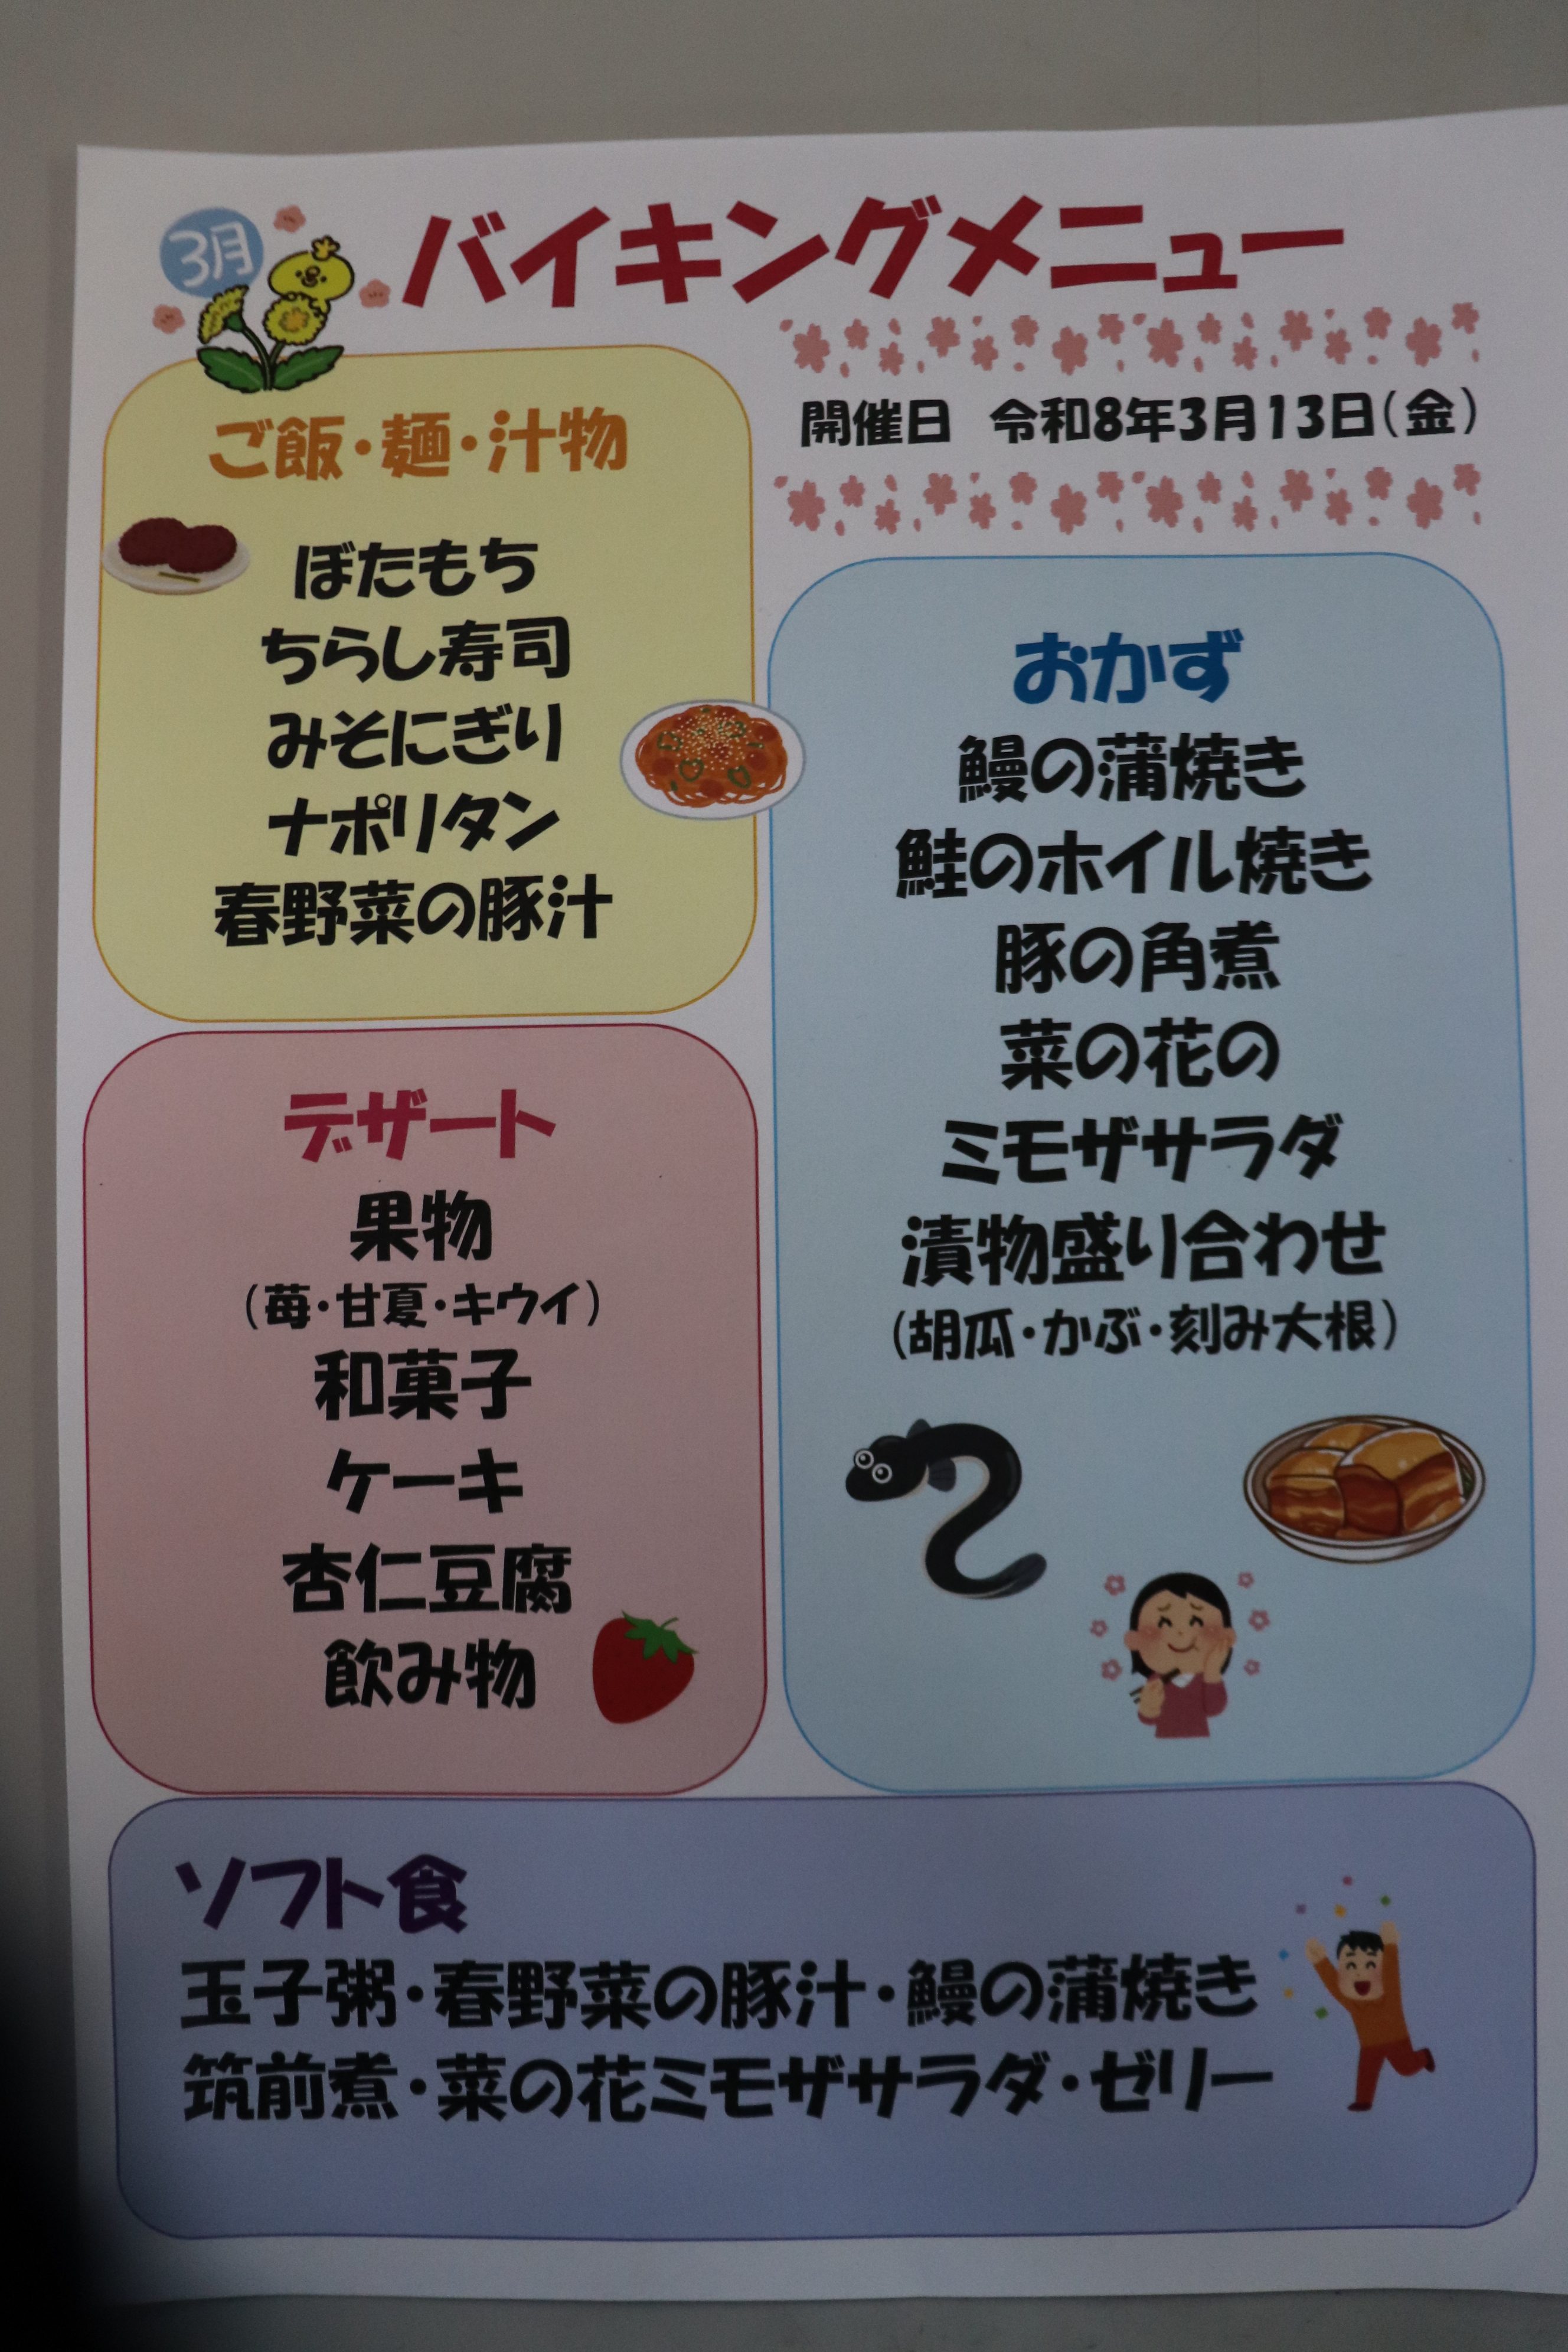 3月
バイキングメニュー
開催日 令和8年3月13日(金)
ご飯・麺・汁物
ぼたもち
ちらし寿司
みそにぎり
ナポリタン
春野菜の豚汁
おかず
鰻の蒲焼き
鮭のホイル焼き
豚の角煮
菜の花の
ミモザサラダ
漬物盛り合わせ
(胡瓜・かぶ・刻み大根)
デザート
果物
(苺・甘夏・キウイ)
和菓子
ケーキ
杏仁豆腐
飲み物
ソフト食
玉子粥・春野菜の豚汁・鰻の蒲焼き
筑前煮・菜の花ミモザサラダ・ゼリー